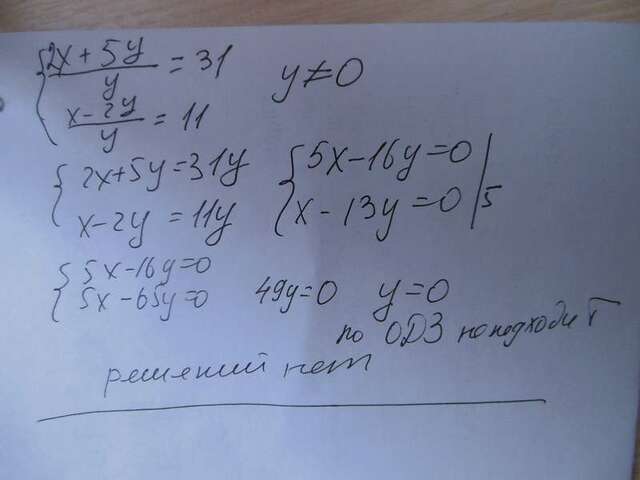 {2x + 5y / y = 31
x - 2y / y = 11 y ≠ 0
{2x+5y=31y {5x-16y=0
x-2y=11y x-13y=0 |5
{5x-16y=0
5x-65y=0 49y=0 y=0
по ОДЗ не подходит
решений нет